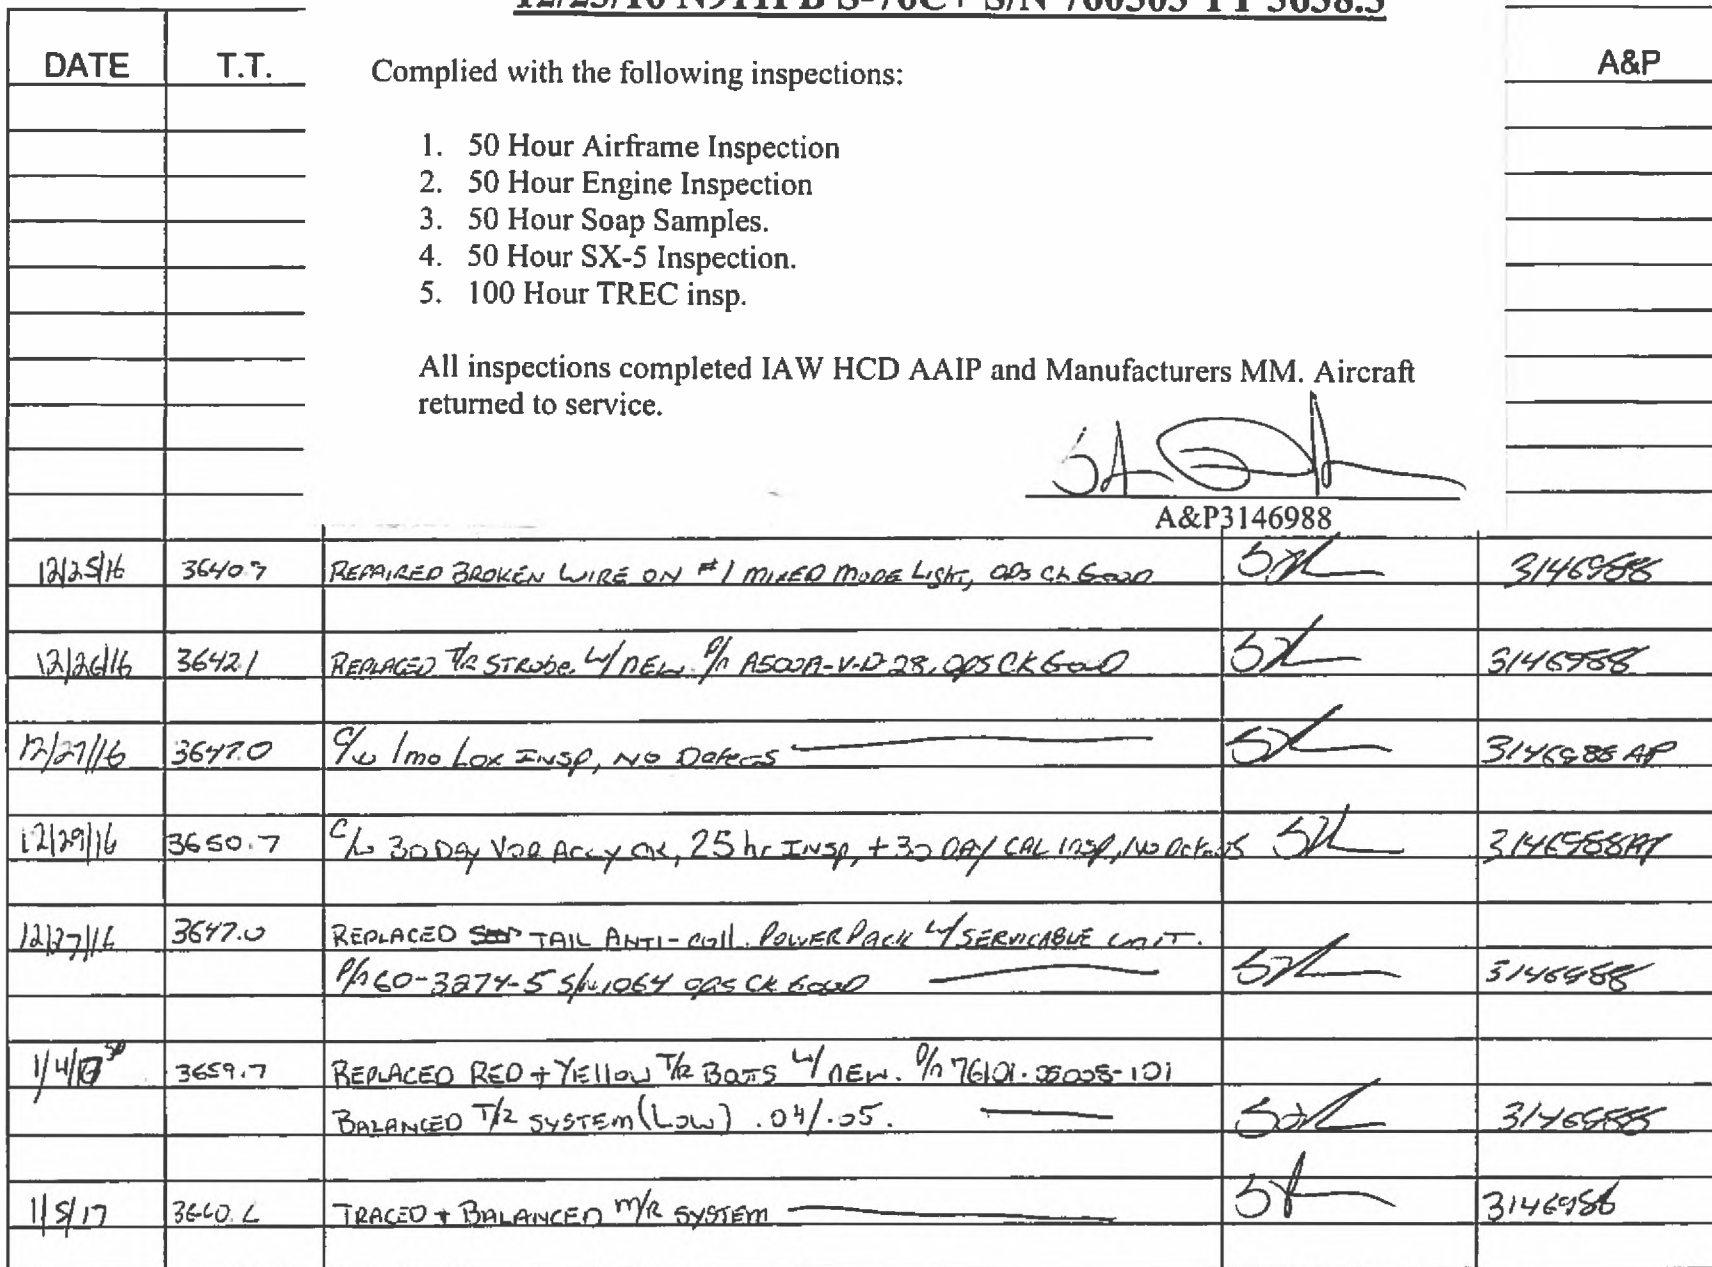 12/23/16 S-76C+ S/N 760505 TT 3638.5
DATE T.T. A&P
Complied with the following inspections:
1. 50 Hour Airframe Inspection
2. 50 Hour Engine Inspection
3. 50 Hour Soap Samples.
4. 50 Hour SX-5 Inspection.
5. 100 Hour TREC insp.
All inspections completed IAW HCD AAIP and Manufacturers MM. Aircraft
returned to service.
A&P3146988
12/25/16 3640.7 REPAIRED BROKEN WIRE ON #1 MIXED MODE Light, OPS Ck Good 3146988
12/26/16 3642.1 REPLACED T/R STROBE W/ NEW. P/N A500A-V-D-28. OPS CK Good 3146988
12/27/16 3647.0 C/W 1mo Lox INSP, NO Defects 3146988 AP
12/29/16 3650.7 C/W 30 DAY VOR Accy CK, 25 hr INSP, + 30 DAY CAL INSP, NO Defects 3146988AP
12/27/16 3647.0 REPLACED TAIL ANTI-Coll. POWER PACK W/ SERVICABLE UNIT.
P/N 60-3274-5 S/N 1064 OPS CK Good 3146988
1/4/17 3659.7 REPLACED RED + YELLOW T/R BOOTS W/ NEW. P/N
BALANCED T/R SYSTEM (LOW) .04/.05. 3146988
1/5/17 3660.6 TRACED + BALANCED M/R SYSTEM 3146988